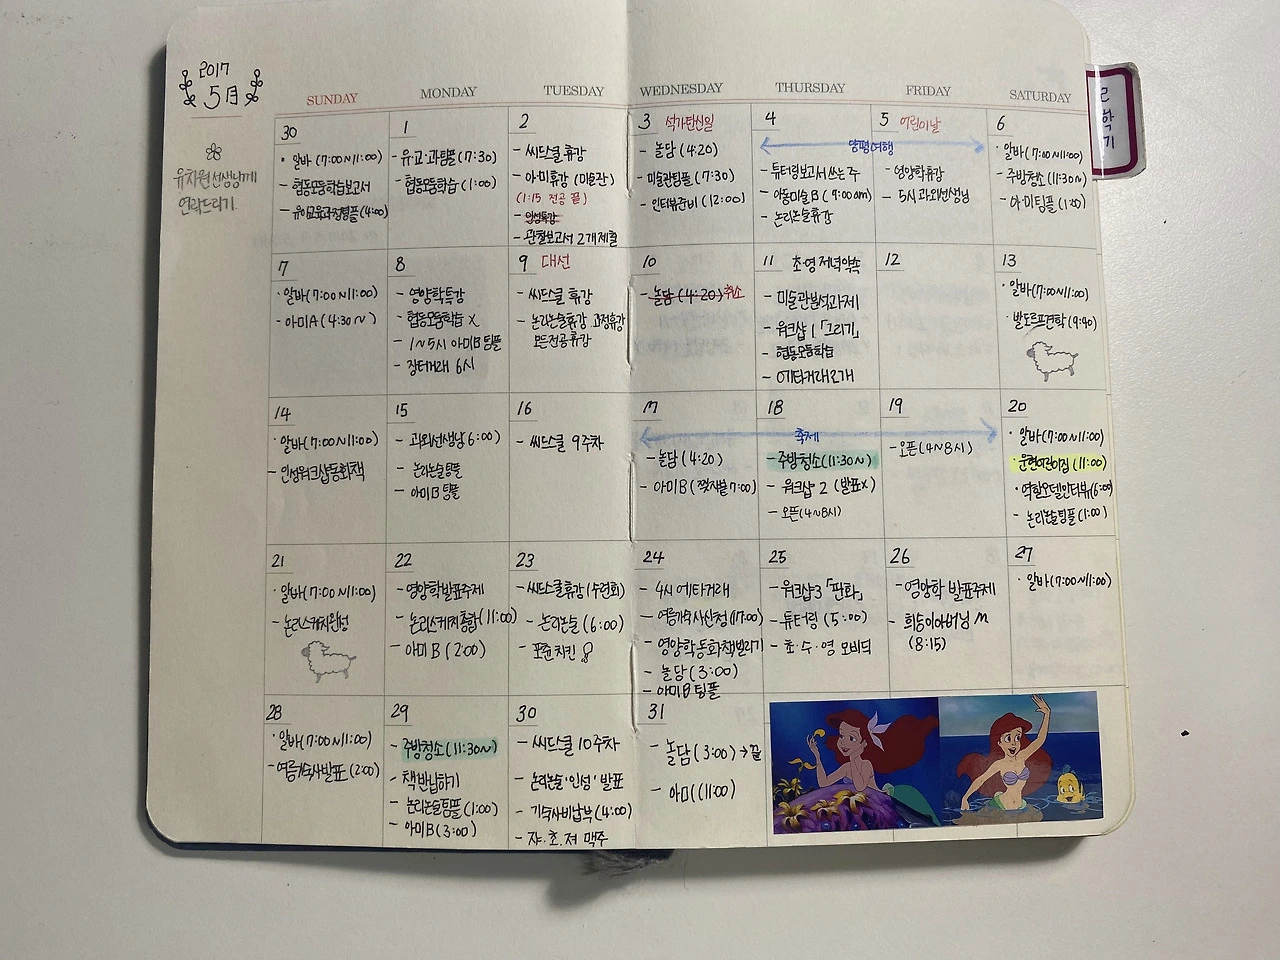 2017
5月
유치원선생님께
연락드리기.
SUNDAY
MONDAY
TUESDAY
WEDNESDAY
THURSDAY
FRIDAY
SATURDAY
30
· 알바 (7:00~11:00)
- 협동모둠학습보고서
- 유아교육과정팀플 (4:00)
1
- 유·교·과팀플 (7:30)
- 협동모둠학습 (1:00)
2
- 씨드스쿨 휴강
- 아·미휴강 (미술관)
(1:15 전공 끝)
- 인성특강
- 관찰보고서 2개제출
3 석가탄신일
- 놀담 (4:20)
- 미술관팀플 (7:30)
- 인터뷰준비 (12:00)
4
양평여행
- 튜터링보고서 쓰는 주
- 아동미술 B (9:00am)
- 논리논술휴강
5 어린이날
- 영양학휴강
- 5시 과외선생님
6
· 알바 (7:00~11:00)
- 주방청소 (11:30~)
- 아·미팀플 (1:00)
7
· 알바 (7:00~11:00)
- 아미A (4:30~)
8
- 영양학특강
- 협동모둠학습 X
- 1~5시 아미B 팀플
- 장터거래 6시
9 대선
- 씨드스쿨 휴강
- 논리논술휴강 교정휴강
모든전공휴강
10
- 놀담 (4:20) 취소
11 초·영 저녁약속
- 미술관분석과제
- 워크샵 1 「그리기」
- 협동모둠학습
- 에타거래 2개
12
13
· 알바 (7:00~11:00)
· 발도르프견학 (9:40)
14
· 알바 (7:00~11:00)
- 인성워크샵동화책
15
- 과외선생님 6:00)
- 논리논술팀플
- 아미B 팀플
16
- 씨드스쿨 9주차
17
축제
- 놀담 (4:20)
- 아미B (7:00)
18
- 주방청소 (11:30~)
- 워크샵 2 (발표X)
- 오픈 (4~8시)
19
- 오픈 (4~8시)
20
· 알바 (7:00~11:00)
· 운현어린이집 (11:00)
· 역할모델인터뷰 (6:00)
- 논리논술팀플 (1:00)
21
· 알바 (7:00~11:00)
- 논리스케치완성
22
- 영양학발표주제
- 논리스케치종합 (11:00)
- 아미 B (2:00)
23
- 씨드스쿨휴강 (수련회)
- 논리논술 (6:00)
- 포쥰치킨
24
- 4시 에타거래
- 여름기숙사신청 (17:00)
- 영양학동화책빌리기
- 놀담 (3:00)
- 아미B 팀플
25
- 워크샵3 「판화」
- 튜터링 (5:00)
- 초·수·영 모비딕
26
- 영양학 발표주제
- 희승이아버님 M
(8:15)
27
· 알바 (7:00~11:00)
28
· 알바 (7:00~11:00)
- 여름기숙사발표 (2:00)
29
- 주방청소 (11:30~)
- 책반납하기
- 논리논술팀플 (1:00)
- 아미B (3:00)
30
- 씨드스쿨 10주차
- 논리논술 '인성' 발표
- 기숙사비납부 (4:00)
- 쟈·초·져 맥주
31
- 놀담 (3:00) → 끝
- 아미 (11:00)